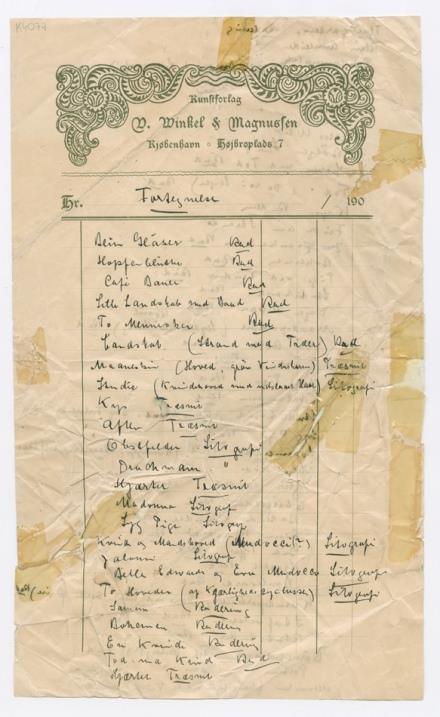 K4077
Kunstforlag
V. Winkel & Magnussen
Kjøbenhavn Højbroplads 7
Hr. Fortegnelse / 190
Beim Gläser Rad
Hopfenblüthe Rad
Café Rad
Lille Landskab med Rad
To Mennesker Rad
Landskab (Strand med Rad
Maaneskin (Hoved, grøn Træsnit
Studie (Kvindehoved med udslaaet Haar) Litografi
Kys Træsnit
Aften Træsnit
Obstfelder Litografi
Drachmann "
Hjærter Træsnit
Madonna Litograf
Syg Pige Litograf
Kvin og Mandshoved (Mudocci?) Litografi
Jalousi Litograf
Bella Edwards og Eva Mudocci Litograf
To Hoveder (af Kjærlighedscyclusse) Litografi
Samme Radering
Bohemen Radering
En Kvinde Radering
Død Kvind Rad
Hjærtet Træsnit